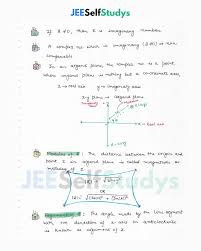 JEESelfStudys
If B≠0, then Z is imaginary number
A complex no. which is imaginary (B≠0) is non
comparable.
In an argand plane, the complex no. is a point,
where argand plane is nothing but a co-ordinate axes,
x → real axis y → imaginary axis
xy plane → argand plane
Real axis
Modulus of Z : The distance between the origin and
point Z in argand plane is called magnitude or
modulus of Z.
OR
JEESelfStudys
Argument of Z : The angle made by the line segment
with +ve direction of x-axis in anticlockwise
is known as argument of Z.